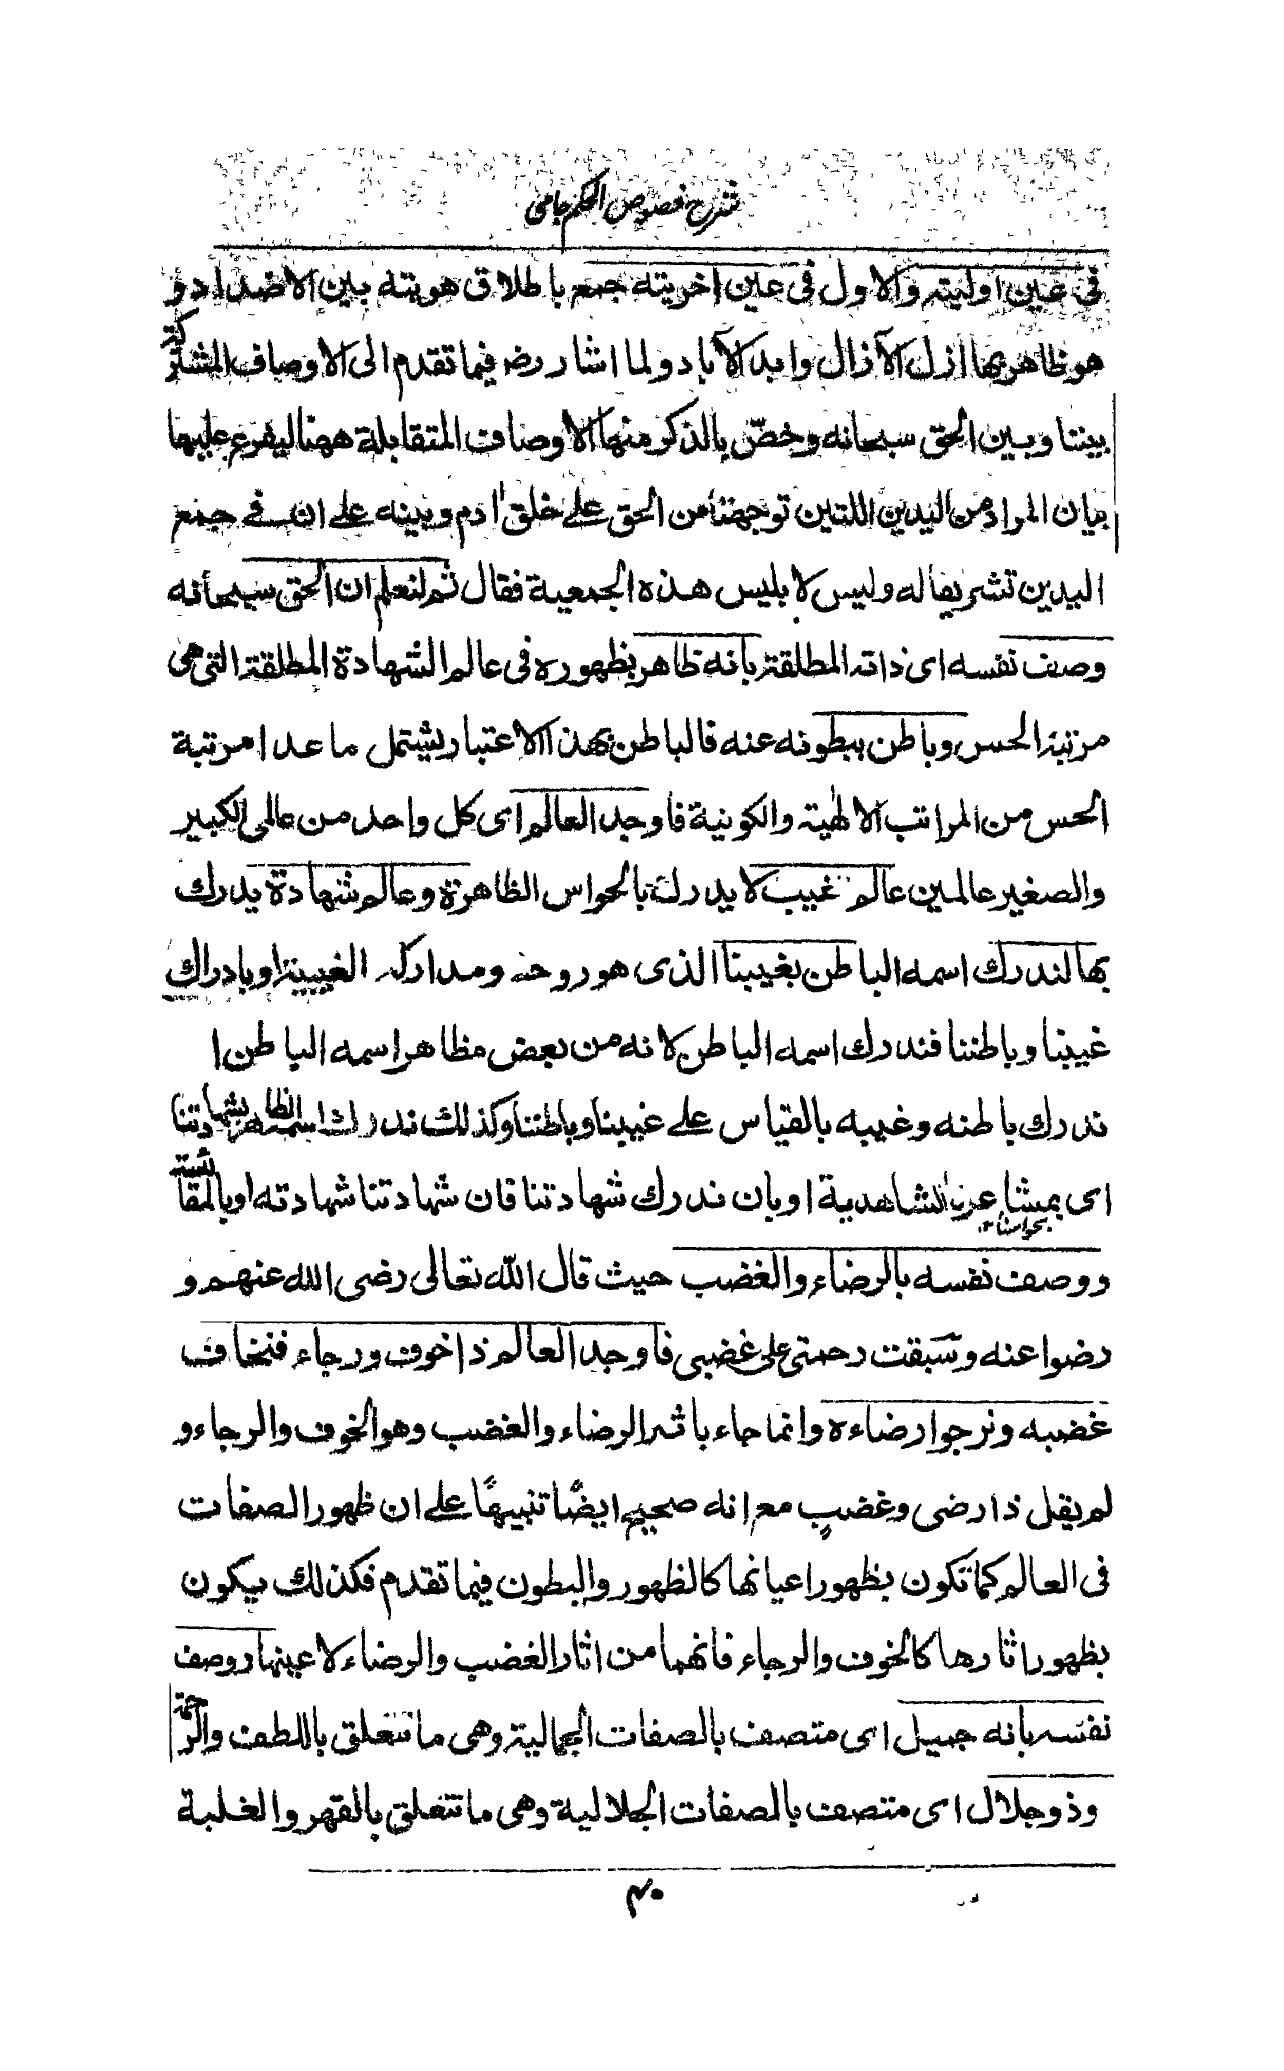 شرح فصوص الحكم جامى
فى عين اوليته والاول فى عين اخريته جمع باطلاق هويته بين الاضداد و
هو ظاهر بها ازل الآزال وابد الآباد ولما اشار رضـ فيما تقدم الى الاوصاف المشتركة
بيننا وبين الحق سبحانه وخصّ بالذكر منها الاوصاف المتقابلة ههنا ليفرع عليها
بيان المراد من اليدين اللتين توجهتا من الحق على خلق ادم وبينه على ان فى جمع
اليدين تشريفا له وليس لابليس هذه الجمعية فقال ثم لنعلم ان الحق سبحانه
وصف نفسه اى ذاته المطلقة بانه ظاهر بظهوره فى عالم الشهادة المطلقة التى هى
مرتبة الحس وباطن ببطونه عنه فالباطن بهذا الاعتبار يشتمل ما عدا مرتبة
الحس من المراتب الالهية والكونية فاوجد العالم اى كل واحد من عالمى الكبير
والصغير عالمين عالم غيب لا يدرك بالحواس الظاهرة وعالم شهادة يدرك
بها لندرك اسمه الباطن بغيبنا الذى هو روحنه ومداركه الغيبية او بادراك
غيبنا وباطننا فندرك اسمه الباطن لانه من بعض مظاهر اسمه الباطن ا
ندرك باطنه وغيبه بالقياس على غيبنا وباطننا وكذلك ندرك اسمه الظاهر بشهادتنا
اى بمشاعرنا الشاهدية اوبان ندرك شهادتنا فان شهادتنا شهادته او بالمقايسة
بحواسنا ١٢
ووصف نفسه بالرضاء والغضب حيث قال الله تعالى رضى الله عنهم و
رضوا عنه وسبقت رحمتى على غضبى فاوجد العالم ذا خوف ورجاء فنخاف
غضبه ونرجوا رضاءه وانما جاء باثر الرضاء والغضب وهو الخوف والرجاء و
لم يقل ذا رضى وغضبٍ مع انه صحيح ايضًا تنبيهًا على ان ظهور الصفات
فى العالم كما تكون بظهور اعيانها كالظهور والبطون فيما تقدم فكذلك يكون
بظهور اثارها كالخوف والرجاء فانهما من اثار الغضب والرضاء لا عينها ووصف
نفسه بانه جميل اى متصف بالصفات الجمالية وهى ما تتعلق باللطف والرحمة
وذو جلال اى متصف بالصفات الجلالية وهى ما تتعلق بالقهر والغلبة
۴۰